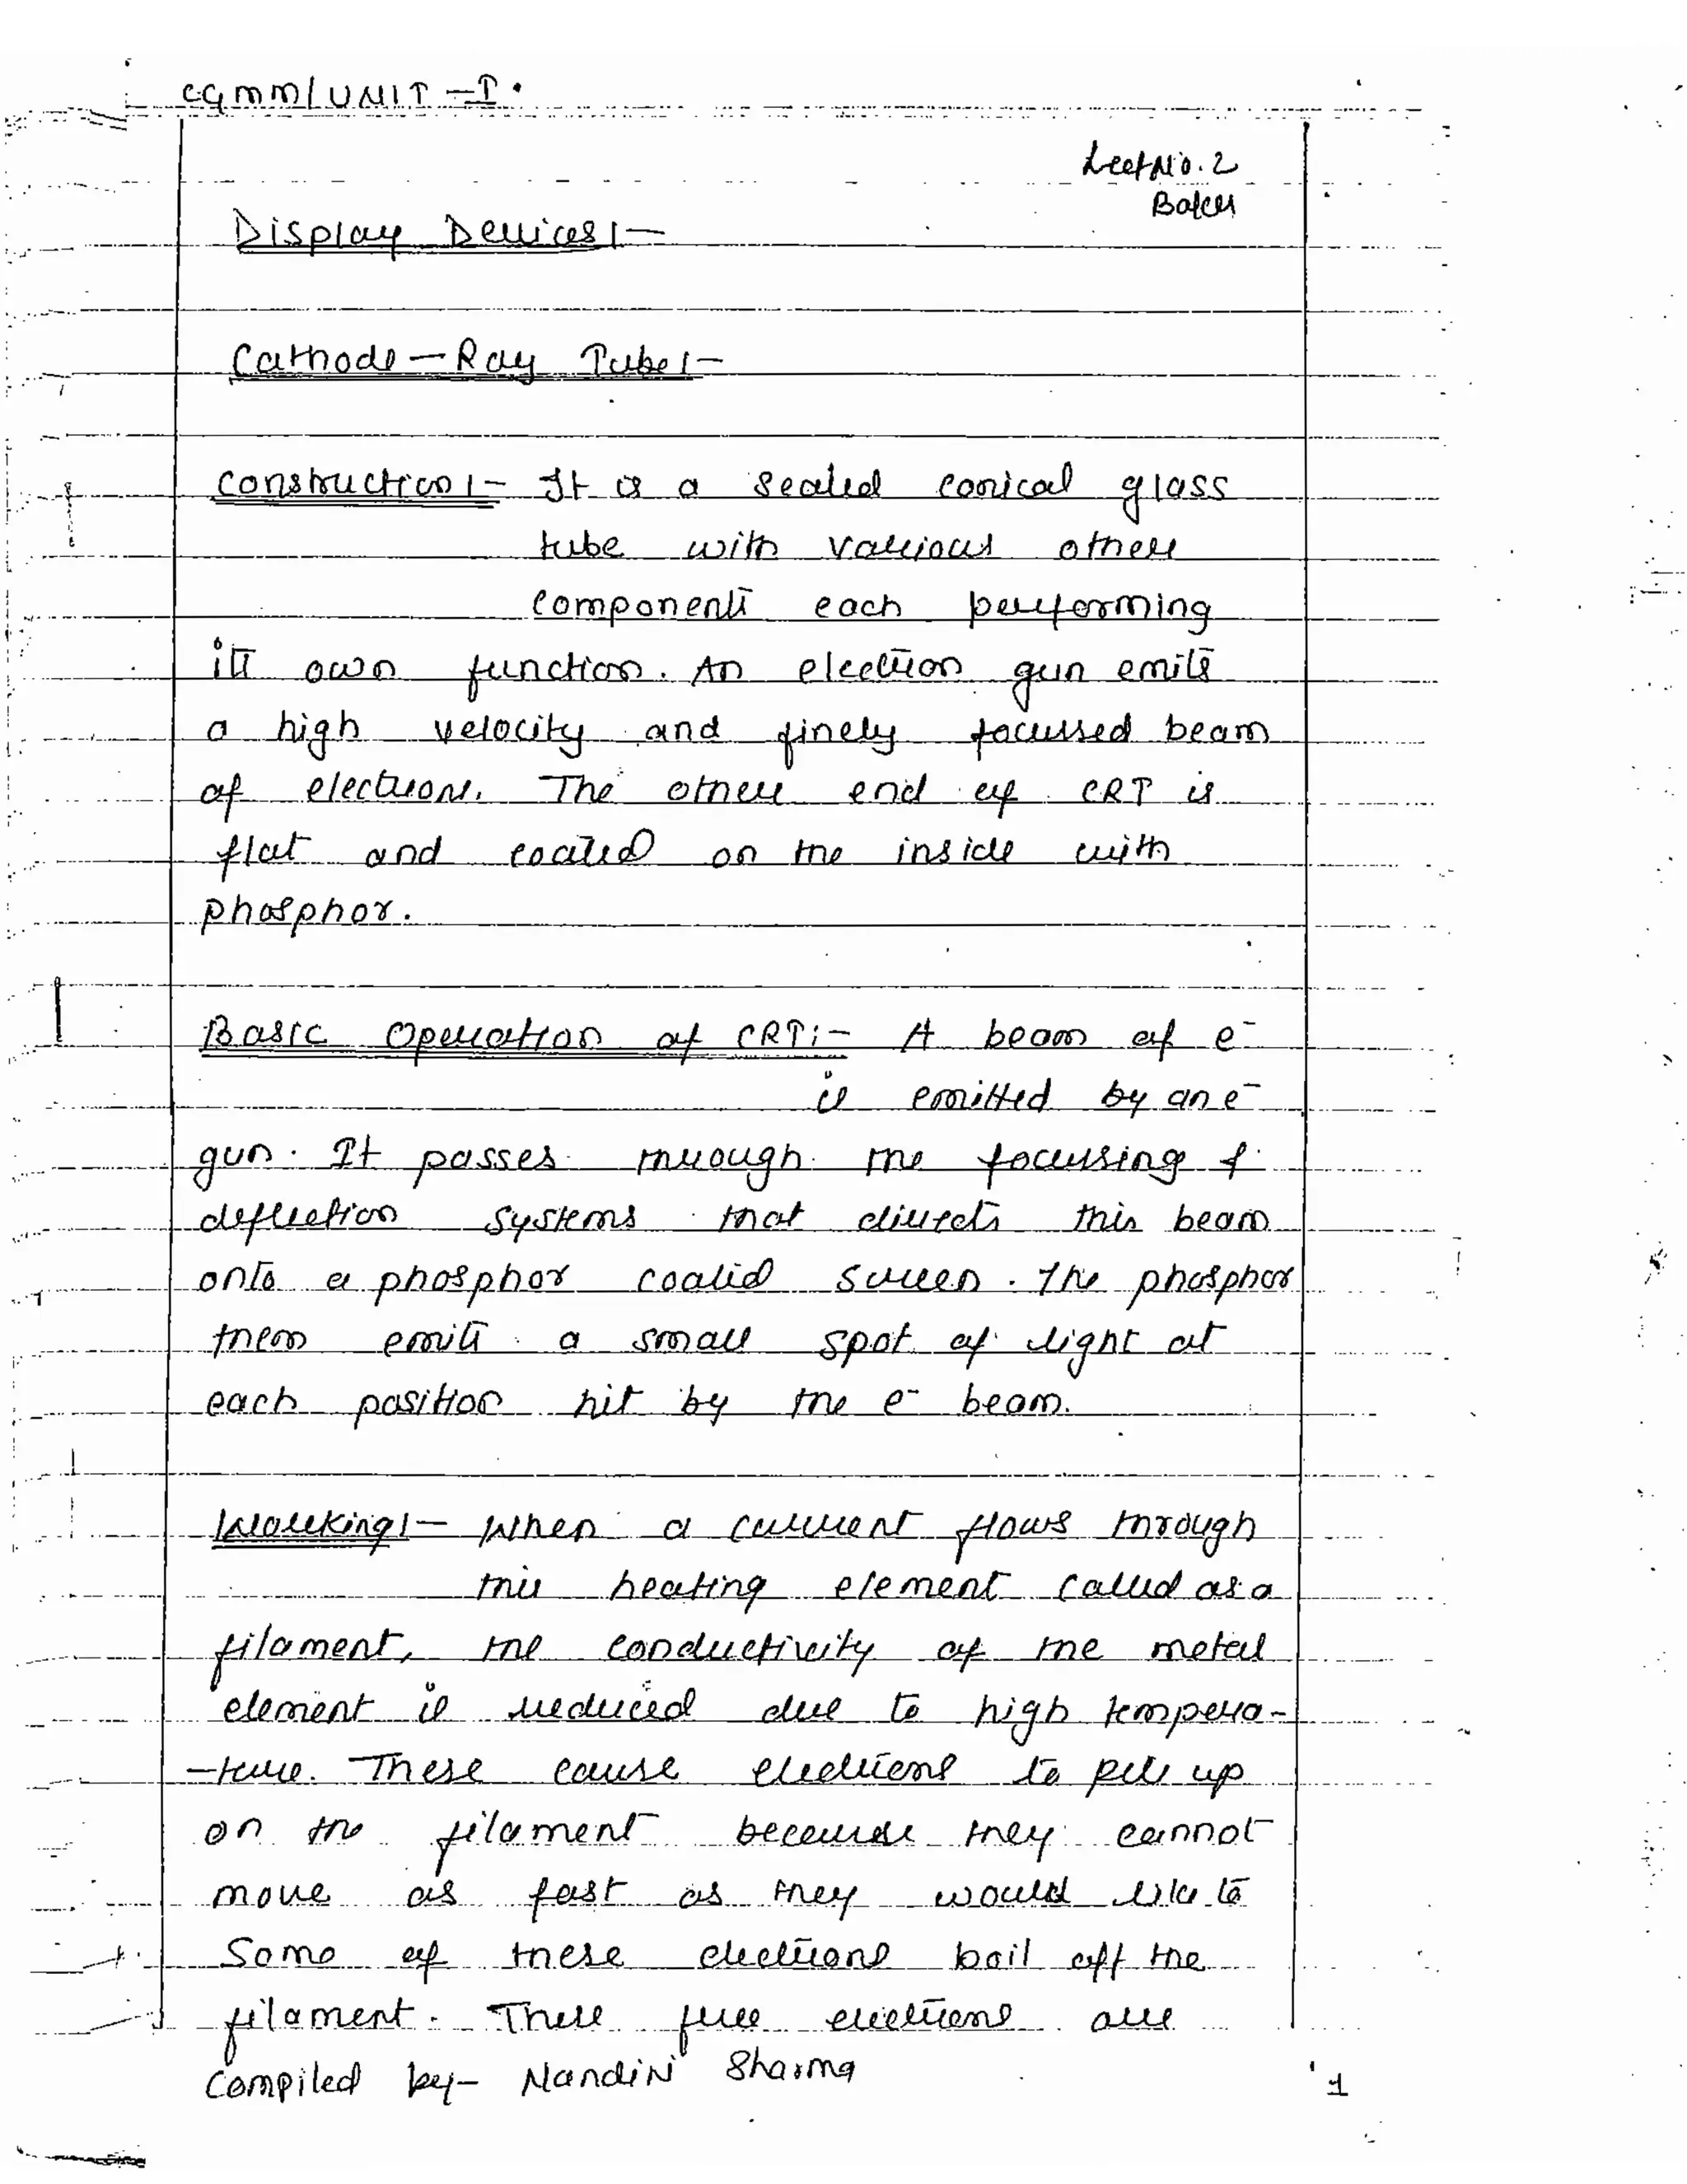 CGMM/UNIT-I.
Lect No. 2
Display Devices:-
Cathode-Ray Tube:-
Construction:- It is a sealed conical glass
tube with various other
components each performing
its own function. An electron gun emits
a high velocity and finely focussed beam
of electrons. The other end of CRT is
flat and coated on the inside with
phosphor.
Basic Operation of CRT:- A beam of e⁻
is emitted by an e⁻
gun. It passes through the focussing &
deflection systems that directs this beam
onto a phosphor coated screen. The phosphor
then emits a small spot of light at
each position hit by the e⁻ beam.
Working:- When a current flows through
this heating element called as a
filament, the conductivity of the metal
element is reduced due to high tempera-
-ture. These cause electrons to pile up
on the filament because they cannot
move as fast as they would like to
Some of these electrons boil off the
filament. These free electrons are
Compiled by- Nandini Sharma
1